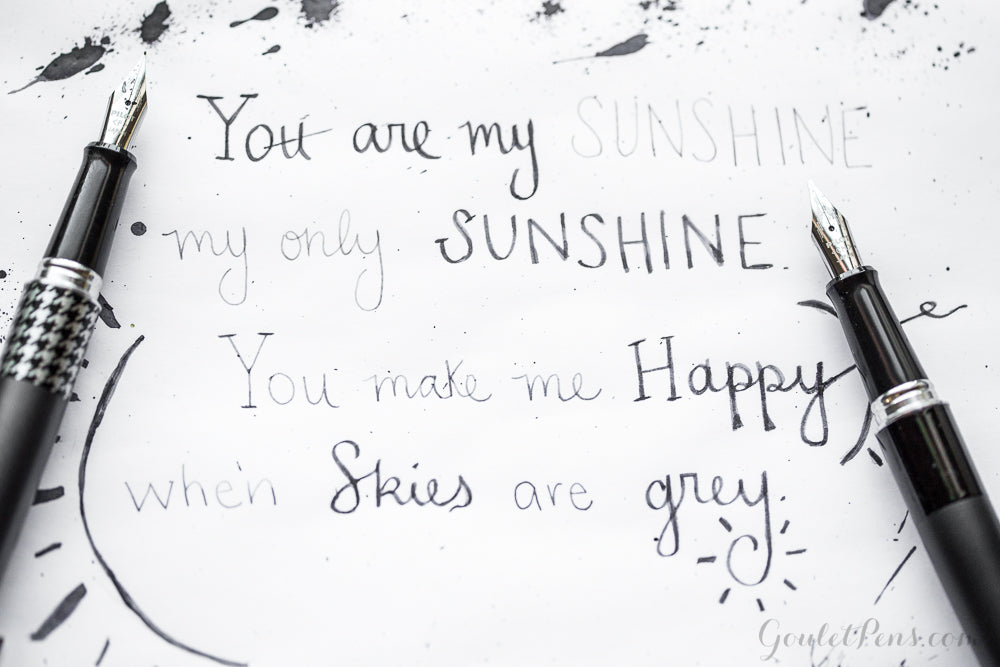 You are my SUNSHINE
my only SUNSHINE.
You make me Happy
when Skies are grey.
GouletPens.com